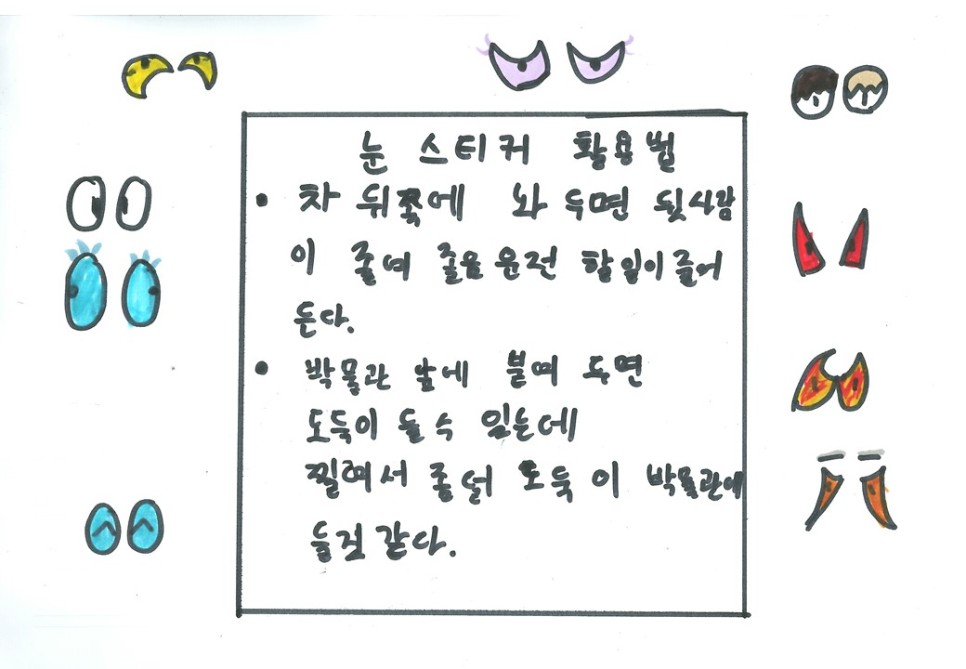 눈 스티커 황용법
• 차 뒤쪽에 놔 두면 뒷사람
이 줄여 졸음 운전 할 일이 줄어
든다.
• 박물관 앞에 붙여 두면
도둑이 들 수 있는데
찔려서 좀덜 도둑이 박물관에
들것 같다.